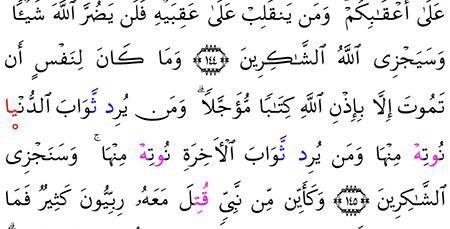 عَلَىٰٓ أَعْقَـٰبِكُمْ ۚ وَمَن يَنقَلِبْ عَلَىٰ عَقِبَيْهِ فَلَن يَضُرَّ ٱللَّهَ شَيْـًٔا ۗ
وَسَيَجْزِى ٱللَّهُ ٱلشَّـٰكِرِينَ ١٤٤ وَمَا كَانَ لِنَفْسٍ أَن
تَمُوتَ إِلَّا بِإِذْنِ ٱللَّهِ كِتَـٰبًا مُّؤَجَّلًا ۗ وَمَن يُرِدْ ثَوَابَ ٱلدُّنْيَا
نُؤْتِهِۦ مِنْهَا وَمَن يُرِدْ ثَوَابَ ٱلْـَٔاخِرَةِ نُؤْتِهِۦ مِنْهَا ۚ وَسَنَجْزِى
ٱلشَّـٰكِرِينَ ١٤٥ وَكَأَيِّن مِّن نَّبِىٍّ قُتِلَ مَعَهُۥ رِبِّيُّونَ كَثِيرٌ فَمَا